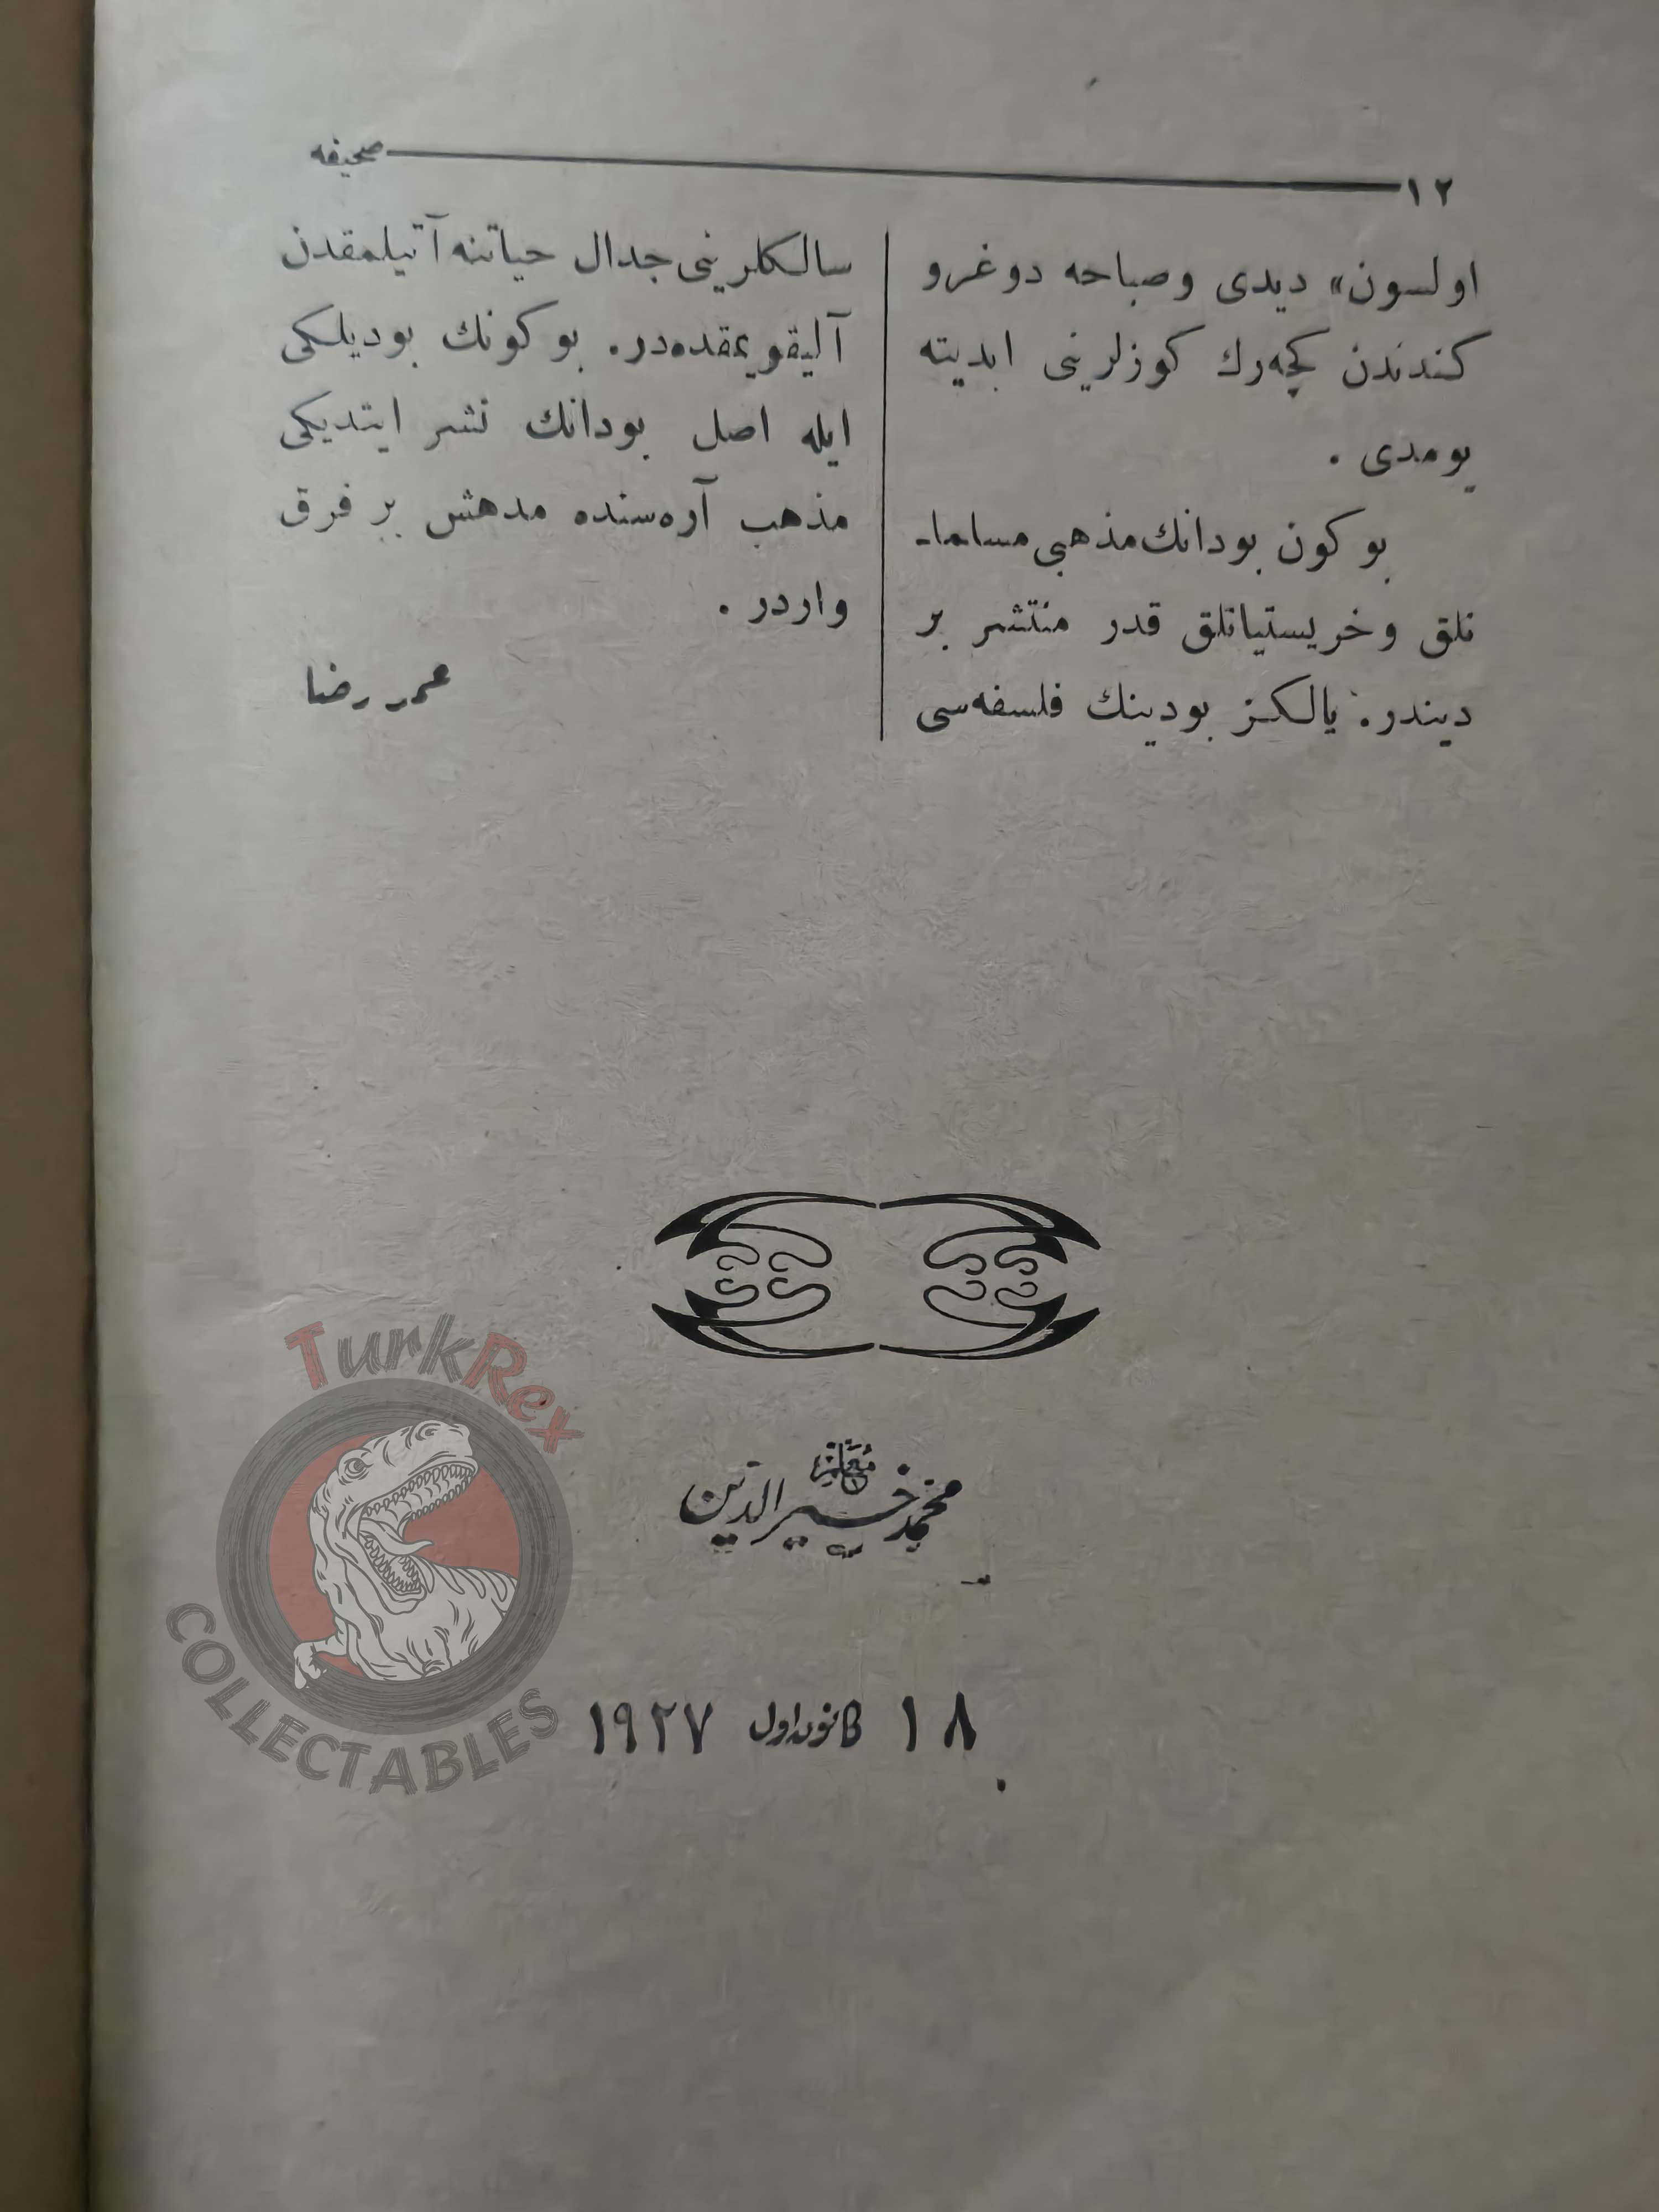 ١٢ صحيفه
اولسون» ديدى وصباحه دوغرو
كندندن كچه‌رك كوزلرينى ابديته
يومدى .
بو كون بودانك مذهبى مسلما-
نلق وخريستيانلق قدر منتشر بر
ديندر. يالكز بودينك فلسفه‌سى
سالكلرينى جدال حياتنه آتيلمقدن
آليقويمقده‌در. بو كونك بوديلكى
ايله اصل بودانك نشر ايتديكى
مذهب آره‌سنده مدهش بر فرق
واردر .
عمر رضا
محمد خيرالدين
١٨ كانون اول ١٩٢٧
TurkRex
COLLECTABLES